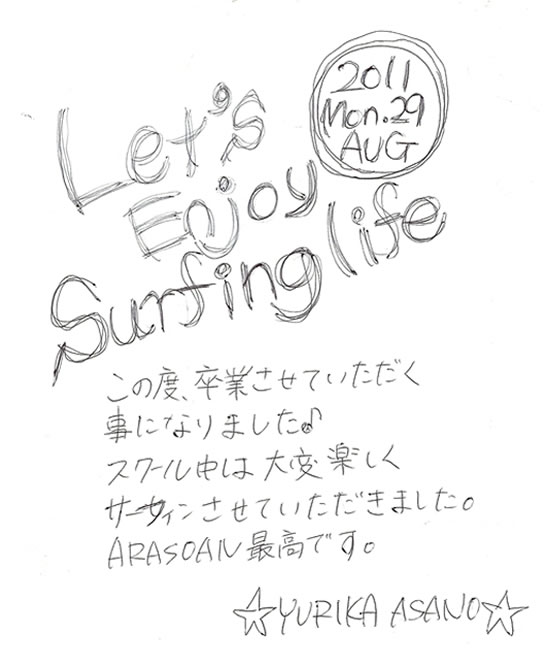 Let's
Enjoy
Surfing life
2011
Mon.29
AUG
この度、卒業させていただく
事になりました♪
スクール中は大変楽しく
サーフィンさせていただきました。
ARASOAN最高です。
☆YURIKA ASANO☆